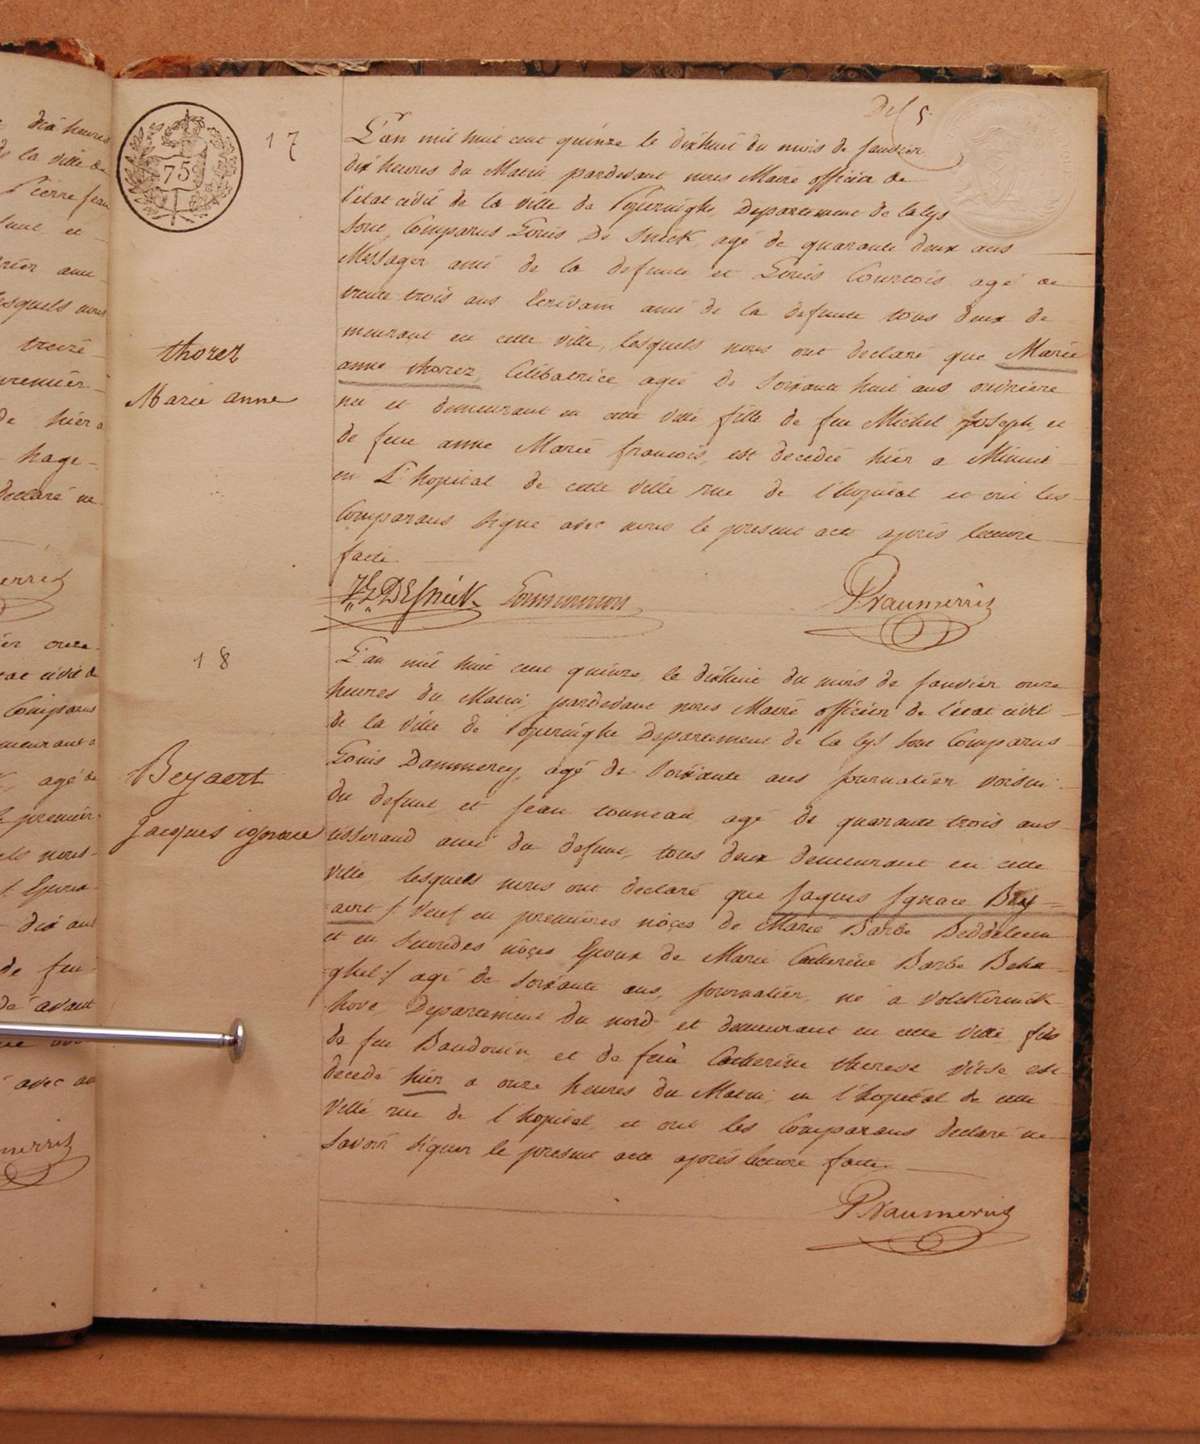 Def 5.
75
17
L'an mil huit cent quinze le dixhuit du mois de Janvier
dix heures du Matin pardevant nous Maire officier de
l'etat civil de la ville de Poperinghe, Departement de la Lys
sont Comparus Louis De Snick, agé de quarante deux ans
Messager ami de la defunte et Louis Courtois agé de
trente trois ans Ecrivain ami de la defunte tous deux de
meurant en cette ville, lesquels nous ont declaré que Marie
anne thorez, Celibatrice agée de soixante huit ans ouvriere
née et demeurant en cette ville fille de feu Michel Joseph, et
de feue anne Marie francois, est decedée hier a Minuit
en L'hopital de cette ville rue de l'hopital et ont les
Comparans signé avec nous le present acte après lecture
faite
thorez
Marie anne
DESnick
PVaumerris
18
L'an mil huit cent quinze, le dixhuit du mois de Janvier onze
heures du Matin, pardevant nous Maire officier de l'etat civil
de la ville de Poperinghe Departement de la Lys sont Comparus
Louis Dammerey, agé de soixante ans journalier voisin
du defunt, et Jean agé de quarante trois ans
tisserand ami du defunt, tous deux demeurant en cette
ville lesquels nous ont declaré que Jaques Ignace Bey=
aert / Veuf en premières nôces de Marie Barbe Beddeleem
et en secondes nôces Epoux de Marie Catherine Barbe Beha
ghel:/ agé de soixante ans, journalier, né a Volckerinck
hove, Departement du nord et demeurant en cette ville fils
de feu Baudouin, et de feue Catherine therese Vitse est
decedé hier a onze heures du Matin, en l'hopital de cette
ville rue de l'hopital, et ont les Comparans declaré ne
savoir signer le present acte après lecture faite.
Beyaert
jacques ignace
PVaumerris